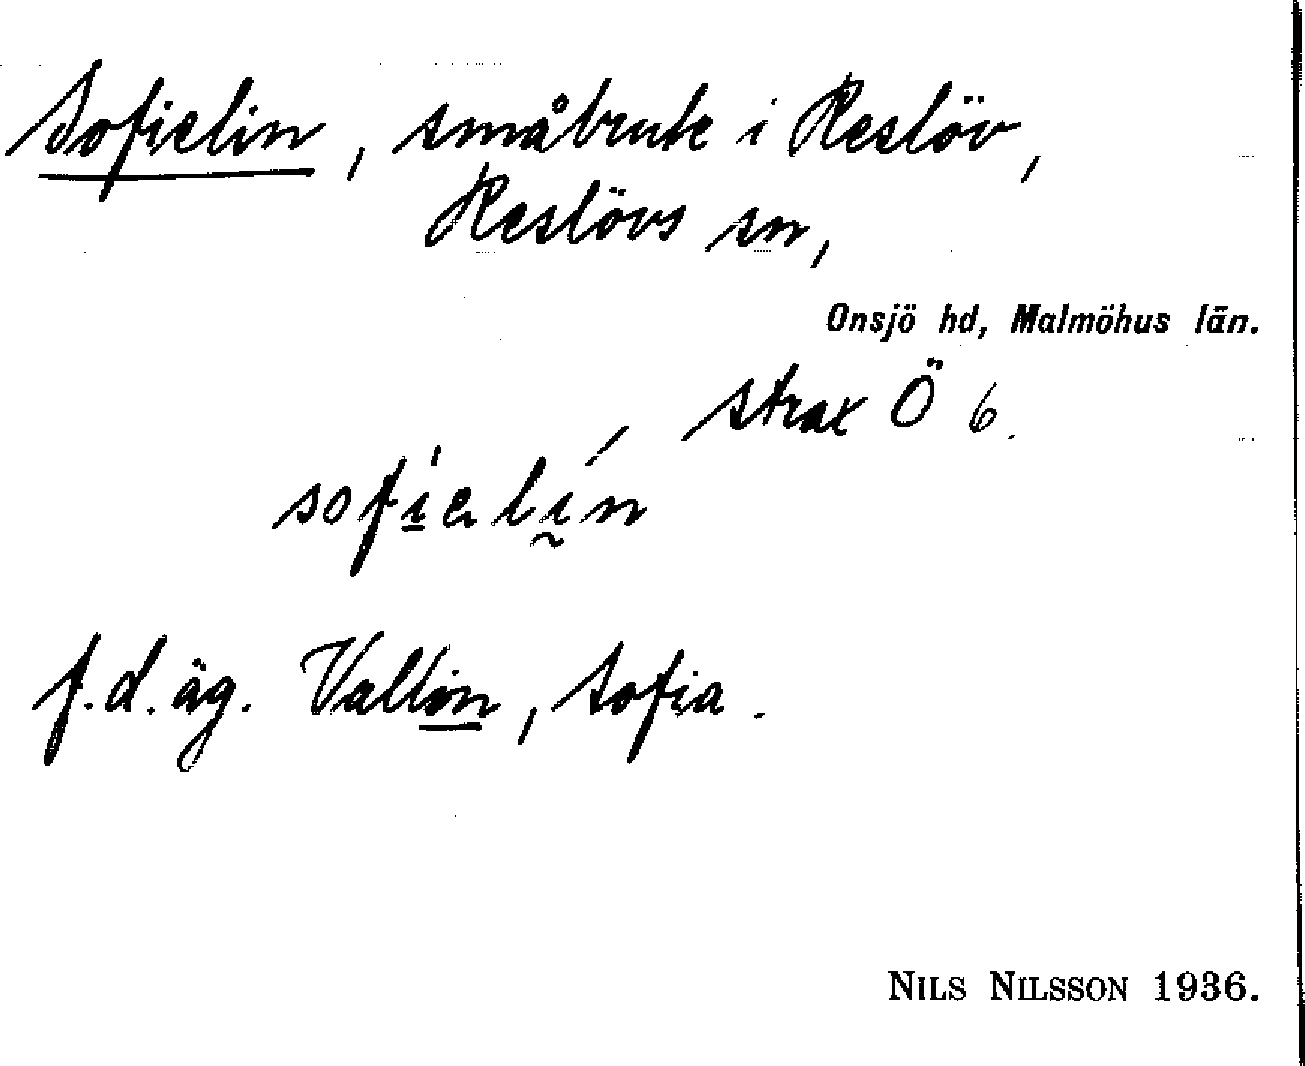 Sofielin, småbruk i Reslöv,
Reslövs sn,
Onsjö hd, Malmöhus län.
strax Ö 6.
sofielin
f.d. äg. Vallin, Sofia.
NILS NILSSON 1936.